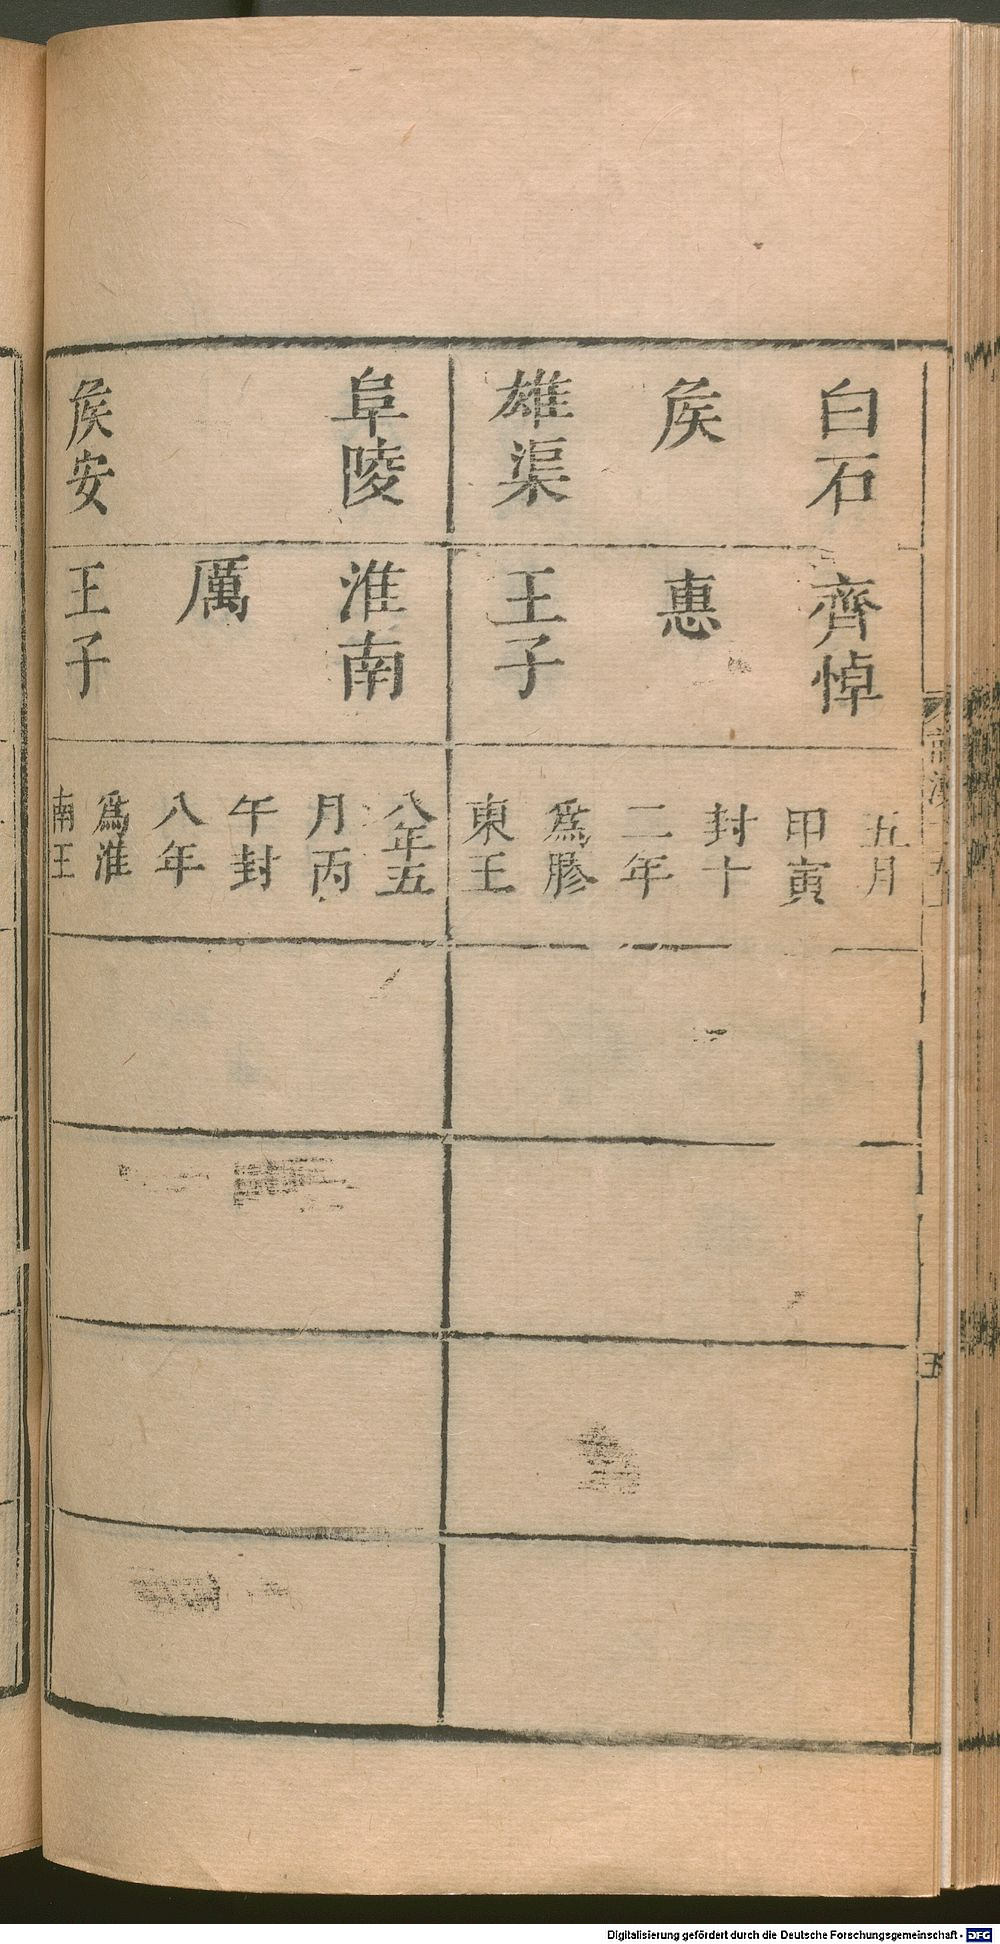 白石
侯
雄渠
齊悼
惠
王子
五月
甲寅
封十
二年
為膠
東王
阜陵
侯安
淮南
厲
王子
八年五
月丙
午封
八年
為淮
南王
Digitalisierung gefördert durch die Deutsche Forschungsgemeinschaft - DFG